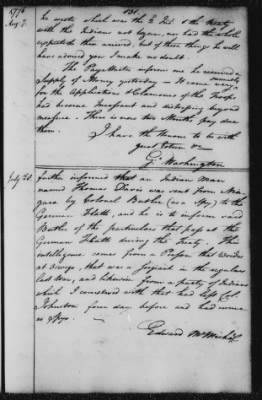 1776
Aug. 7.
he wrote which was the 2d Ist. & the treaty
with the Indians not begun, nor had the whole
expected then arrived, but of these things he will
have advised you I make no doubt.
The PayMaster informs me he received a
Supply of Money yesterday – It came very
for the Application & Clamours of the Troops
had become Incessant and distressing beyond
measure. There is now two Months pay due
them.
I have the Honor to be with
great Esteem &c
Go. Washington
July 28.
further informed that an Indian Man
named Thomas Davis was sent from Niagara
by Colonel Butler (as a Spy) to the
German Flatts, and he is to inform said
Butler of the particulars that pass at the
German Flatts during the Treaty. This
intelligence comes from a Person that resides
at Oswego, that was a Serjeant in the regulars
last War, and likewise from a party of Indians
which I conversed with that had left Col.
Johnston four days before and had
as Spys.
Edward